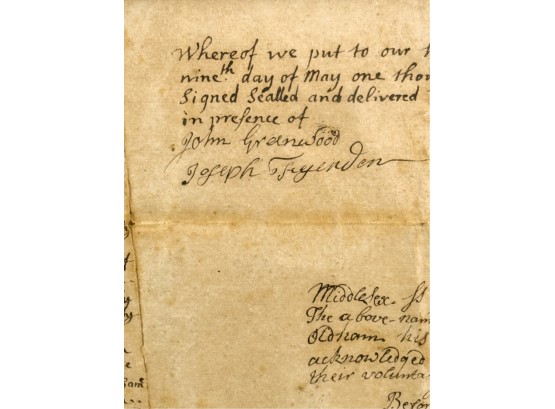 Whereof we put to our
nineth day of May one thou
Signed Sealled and delivered
in presence of
John
Joseph
Middlesex. ss
The above-nam
Oldham his
acknowledged
their volunta
Befor